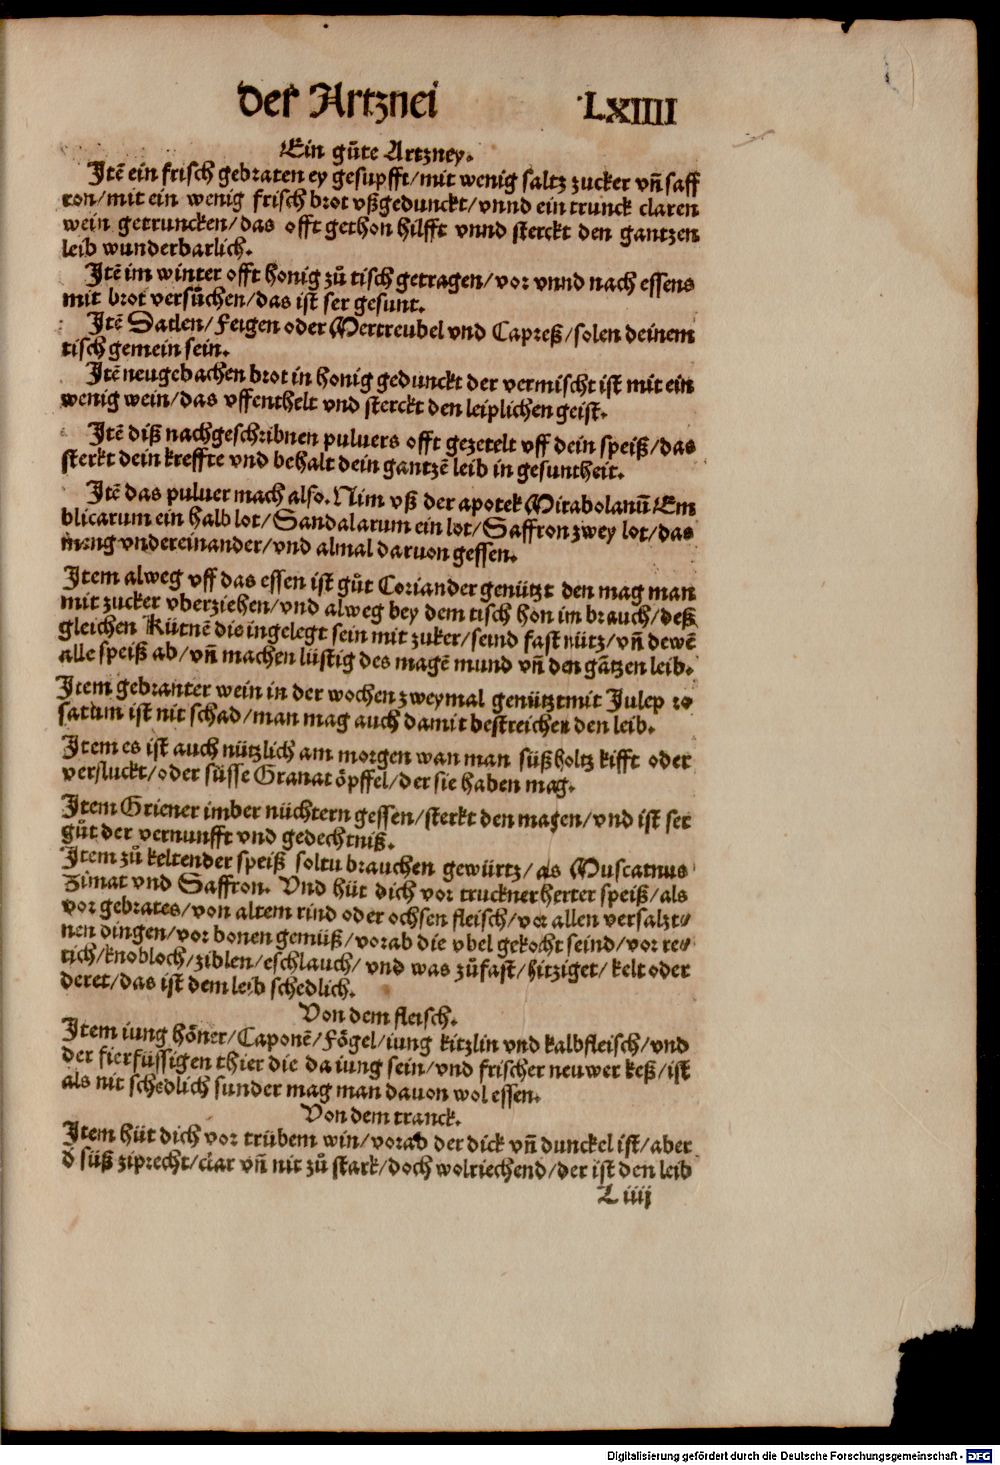 der Artznei LXIIII
Ein gůte Artzney.
Itē ein frisch gebraten ey gesupfft/mit wenig saltz zucker vñ saff
ron/mit ein wenig frisch brot vßgedunckt/vnnd ein trunck claren
wein getruncken/das offt gethon hilfft vnnd sterckt den gantzen
leib wunderbarlich.
Itē im winter offt honig zů tisch getragen/vor vnnd nach essens
mit brot versůchen/das ist ser gesunt.
Itē Datlen/Feigen oder Mertreubel vnd Capreß/solen deinem
tisch gemein sein.
Itē neugebachen brot in honig gedunckt der vermischt ist mit ein
wenig wein/das vffenthelt vnd sterckt den leiplichen geist.
Itē diß nachgeschribnen puluers offt gezetelt vff dein speiß/das
sterkt dein kreffte vnd behalt dein gantzē leib in gesuntheit.
Itē das puluer mach also. Nim vß der apotek Mirabolanū Em
blicarum ein halb lot/Sandalarum ein lot/Saffron zwey lot/das
meng vndereinander/vnd almal daruon gessen.
Item alweg vff das essen ist gůt Coriander genützt den mag man
mit zucker vberziehen/vnd alweg bey dem tisch hon im brauch/deß
gleichen Kütnē die ingelegt sein mit zuker/seind fast nütz/vñ dewē
alle speiß ab/vñ machen lüstig des magē mund vñ den gātzen leib.
Item gebranter wein in der wochen zweymal genütztmit Julep ro
satum ist nit schad/man mag auch damit bestreichen den leib.
Item es ist auch nützlich am morgen wan man süßholtz kifft oder
versluckt/oder süsse Granat öpffel/der sie haben mag.
Item Griener imber nüchtern gessen/sterkt den magen/vnd ist ser
gůt der vernunfft vnd gedechtniß.
Item zů keltender speiß soltu brauchen gewürtz/as Muscatnus
Zimat vnd Saffron. Vnd hüt dich vor truckner herter speiß/als
vor gebrates/von altem rind oder ochsen fleisch/vor allen versalzt⸗
nen dingen/vor bonen gemüß/vorab die vbel gekocht seind/vor re⸗
tich/knobloch/ziblen/eschlauch/vnd was zůfast/hitziget/kelt oder
deret/das ist dem leib schedlich.
Von dem fleisch.
Item iung höner/Caponē/Fögel/iung kitzlin vnd kalbfleisch/vnd
der fierfüssigen thier die da iung sein/vnd frischer neuwer keß/ist
als nit schedlich sunder mag man dauon wol essen.
Von dem tranck.
Item hüt dich vor trübem win/vorab der dick vñ dunckel ist/aber
d̄ süß ziprecht/clar vñ nit zů stark/doch wolriechend/der ist den leib
L iiij
Digitalisierung gefördert durch die Deutsche Forschungsgemeinschaft - DFG